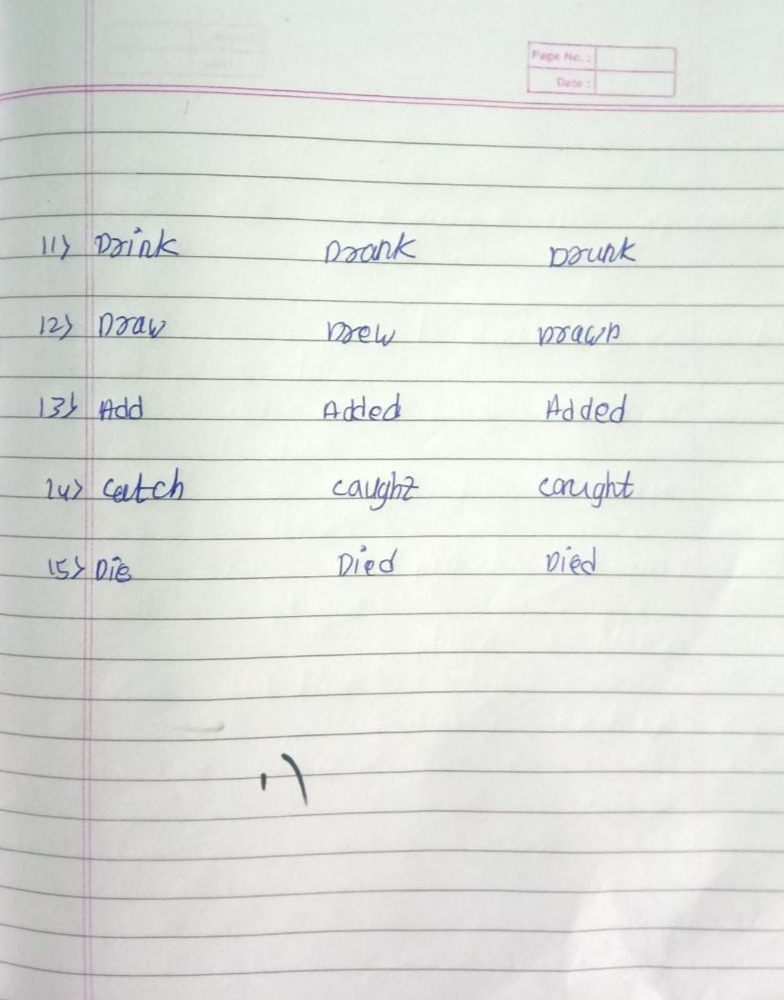 Page No. :
Date :
11) Drink Drank Drunk
12) Draw Drew Drawn
13) Add Added Added
14) Catch caught caught
15) Die Died Died